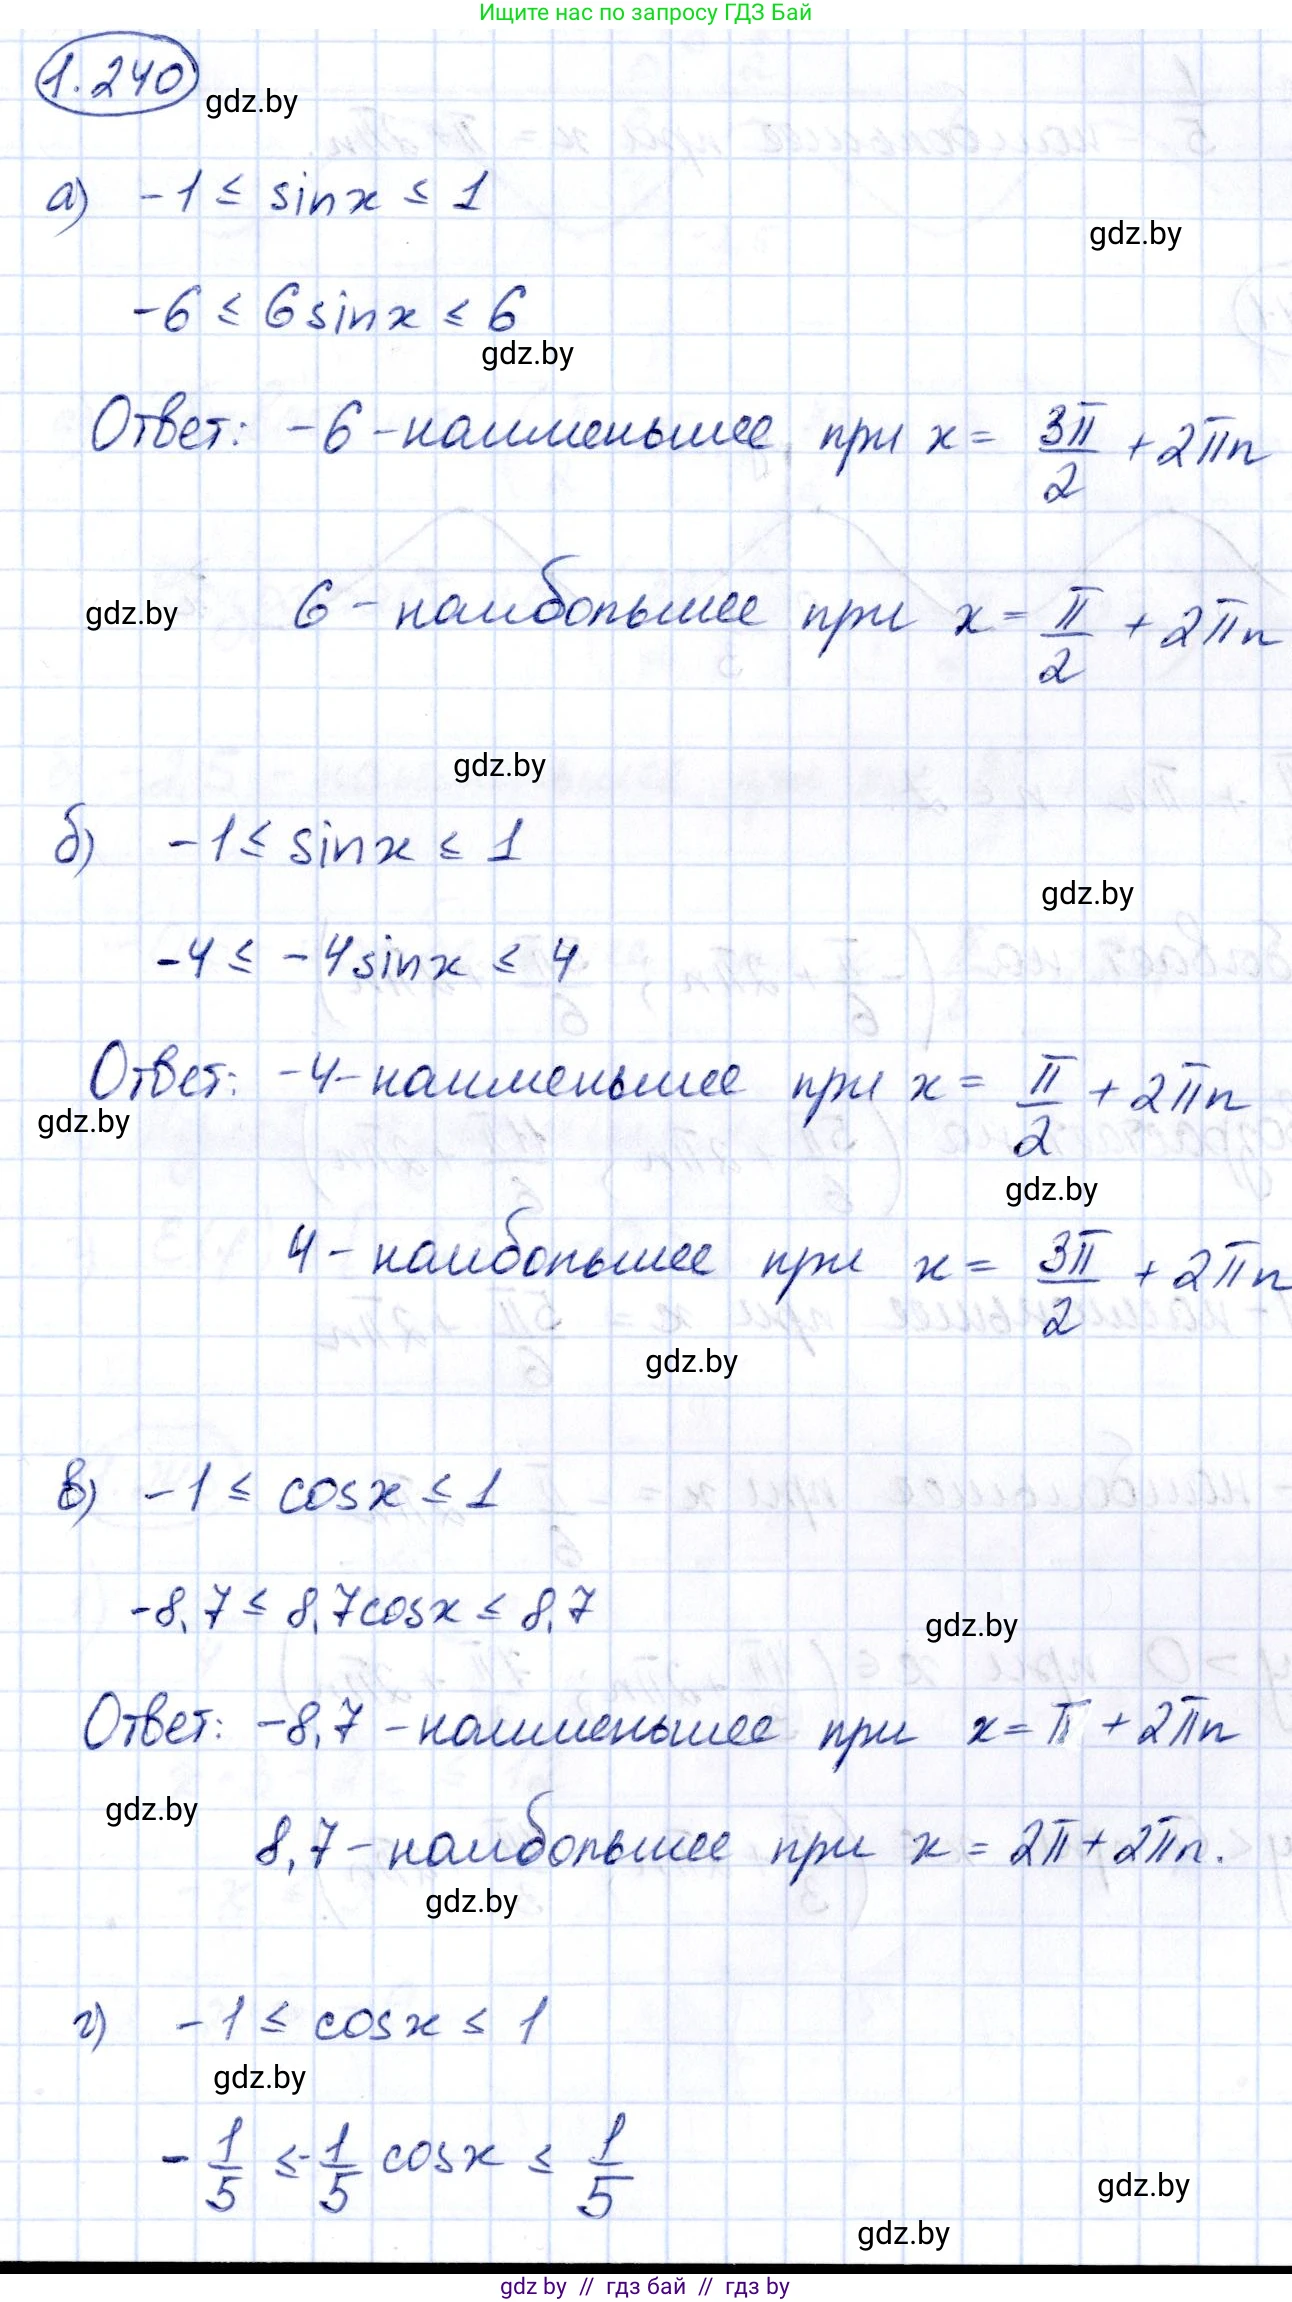 Ищите нас по запросу ГДЗ Бай
1.240
gdz.by
а) -1 ≤ sinx ≤ 1
gdz.by
-6 ≤ 6sinx ≤ 6
gdz.by
Ответ: -6 - наименьшее при x = 3π/2 + 2πn
gdz.by 6 - наибольшее при x = π/2 + 2πn
gdz.by
б) -1 ≤ sinx ≤ 1
gdz.by
-4 ≤ -4sinx ≤ 4
Ответ: -4 - наименьшее при x = π/2 + 2πn
gdz.by
gdz.by
4 - наибольшее при x = 3π/2 + 2πn
gdz.by
в) -1 ≤ cosx ≤ 1
-8,7 ≤ 8,7cosx ≤ 8,7
gdz.by
Ответ: -8,7 - наименьшее при x = π + 2πn
gdz.by
8,7 - наибольшее при x = 2π + 2πn.
gdz.by
г) -1 ≤ cosx ≤ 1
gdz.by
-1/5 ≤ -1/5 cosx ≤ 1/5
gdz.by
gdz.by
gdz by // гдз бай // гдз by